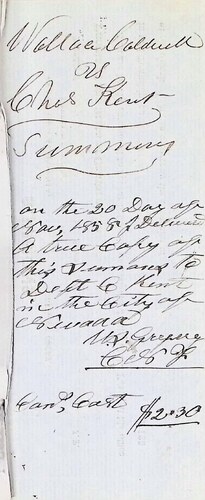 Wallace Caldwell
vs
Chas Kent
Summons
on the 30 Day of
Nov, 1858 I Delivered
A true Copy of
this Sumans to
Deft C Kent
in the City of
Nevada
W. J. Gregory
Cons, Cost $2.30